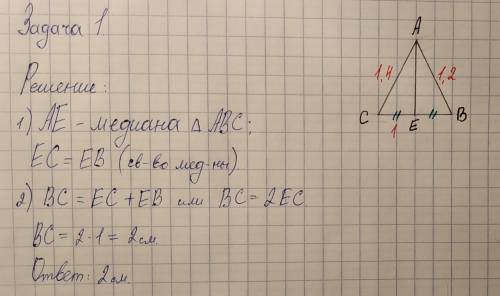 Задача 1.
Решение:
1) AE - медиана △ ABC;
EC = EB (св-во мед-ны).
2) BC = EC + EB или BC = 2EC
BC = 2·1 = 2 см.
Ответ: 2 см.
A
1,4
1,2
C
E
B
1